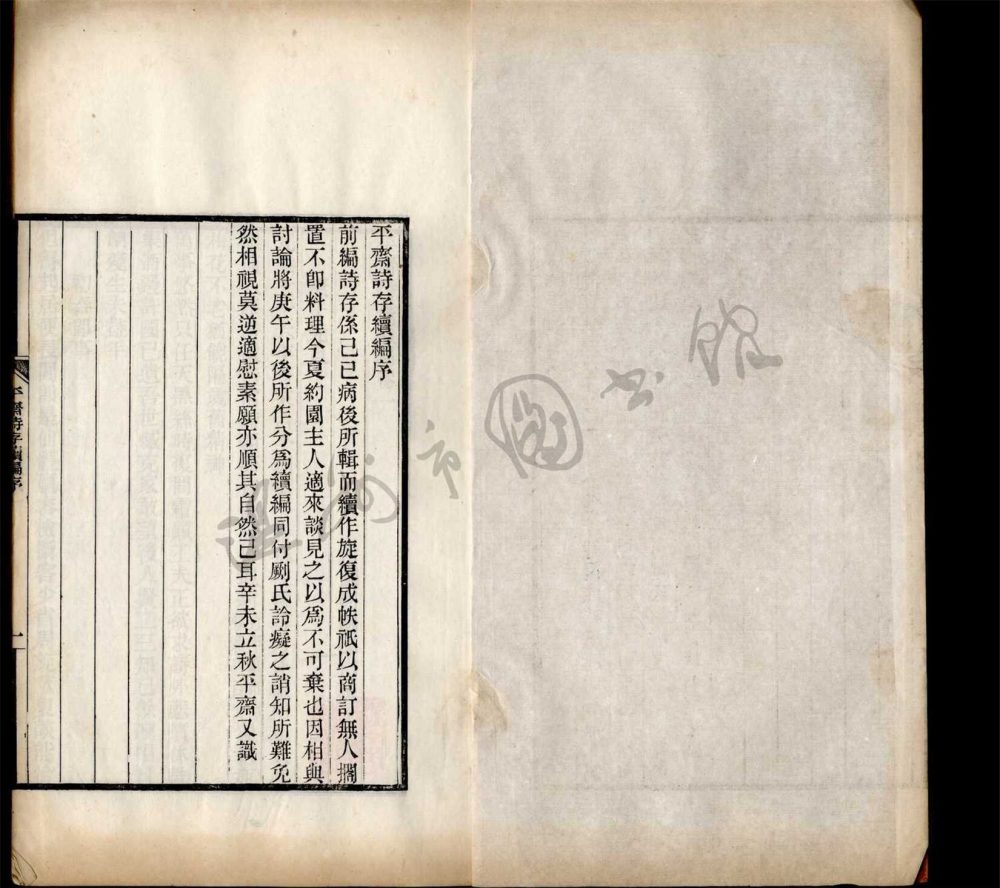 平齋詩存續編序
前編詩存係己巳病後所輯而續作旋復成帙祇以商訂無人擱
置不卽料理今夏約園主人適來談見之以爲不可棄也因相與
討論將庚午以後所作分爲續編同付劂氏詅癡之誚知所難免
然相視莫逆適慰素願亦順其自然已耳辛未立秋平齋又識
平齋詩存續編序
一
市圖书館